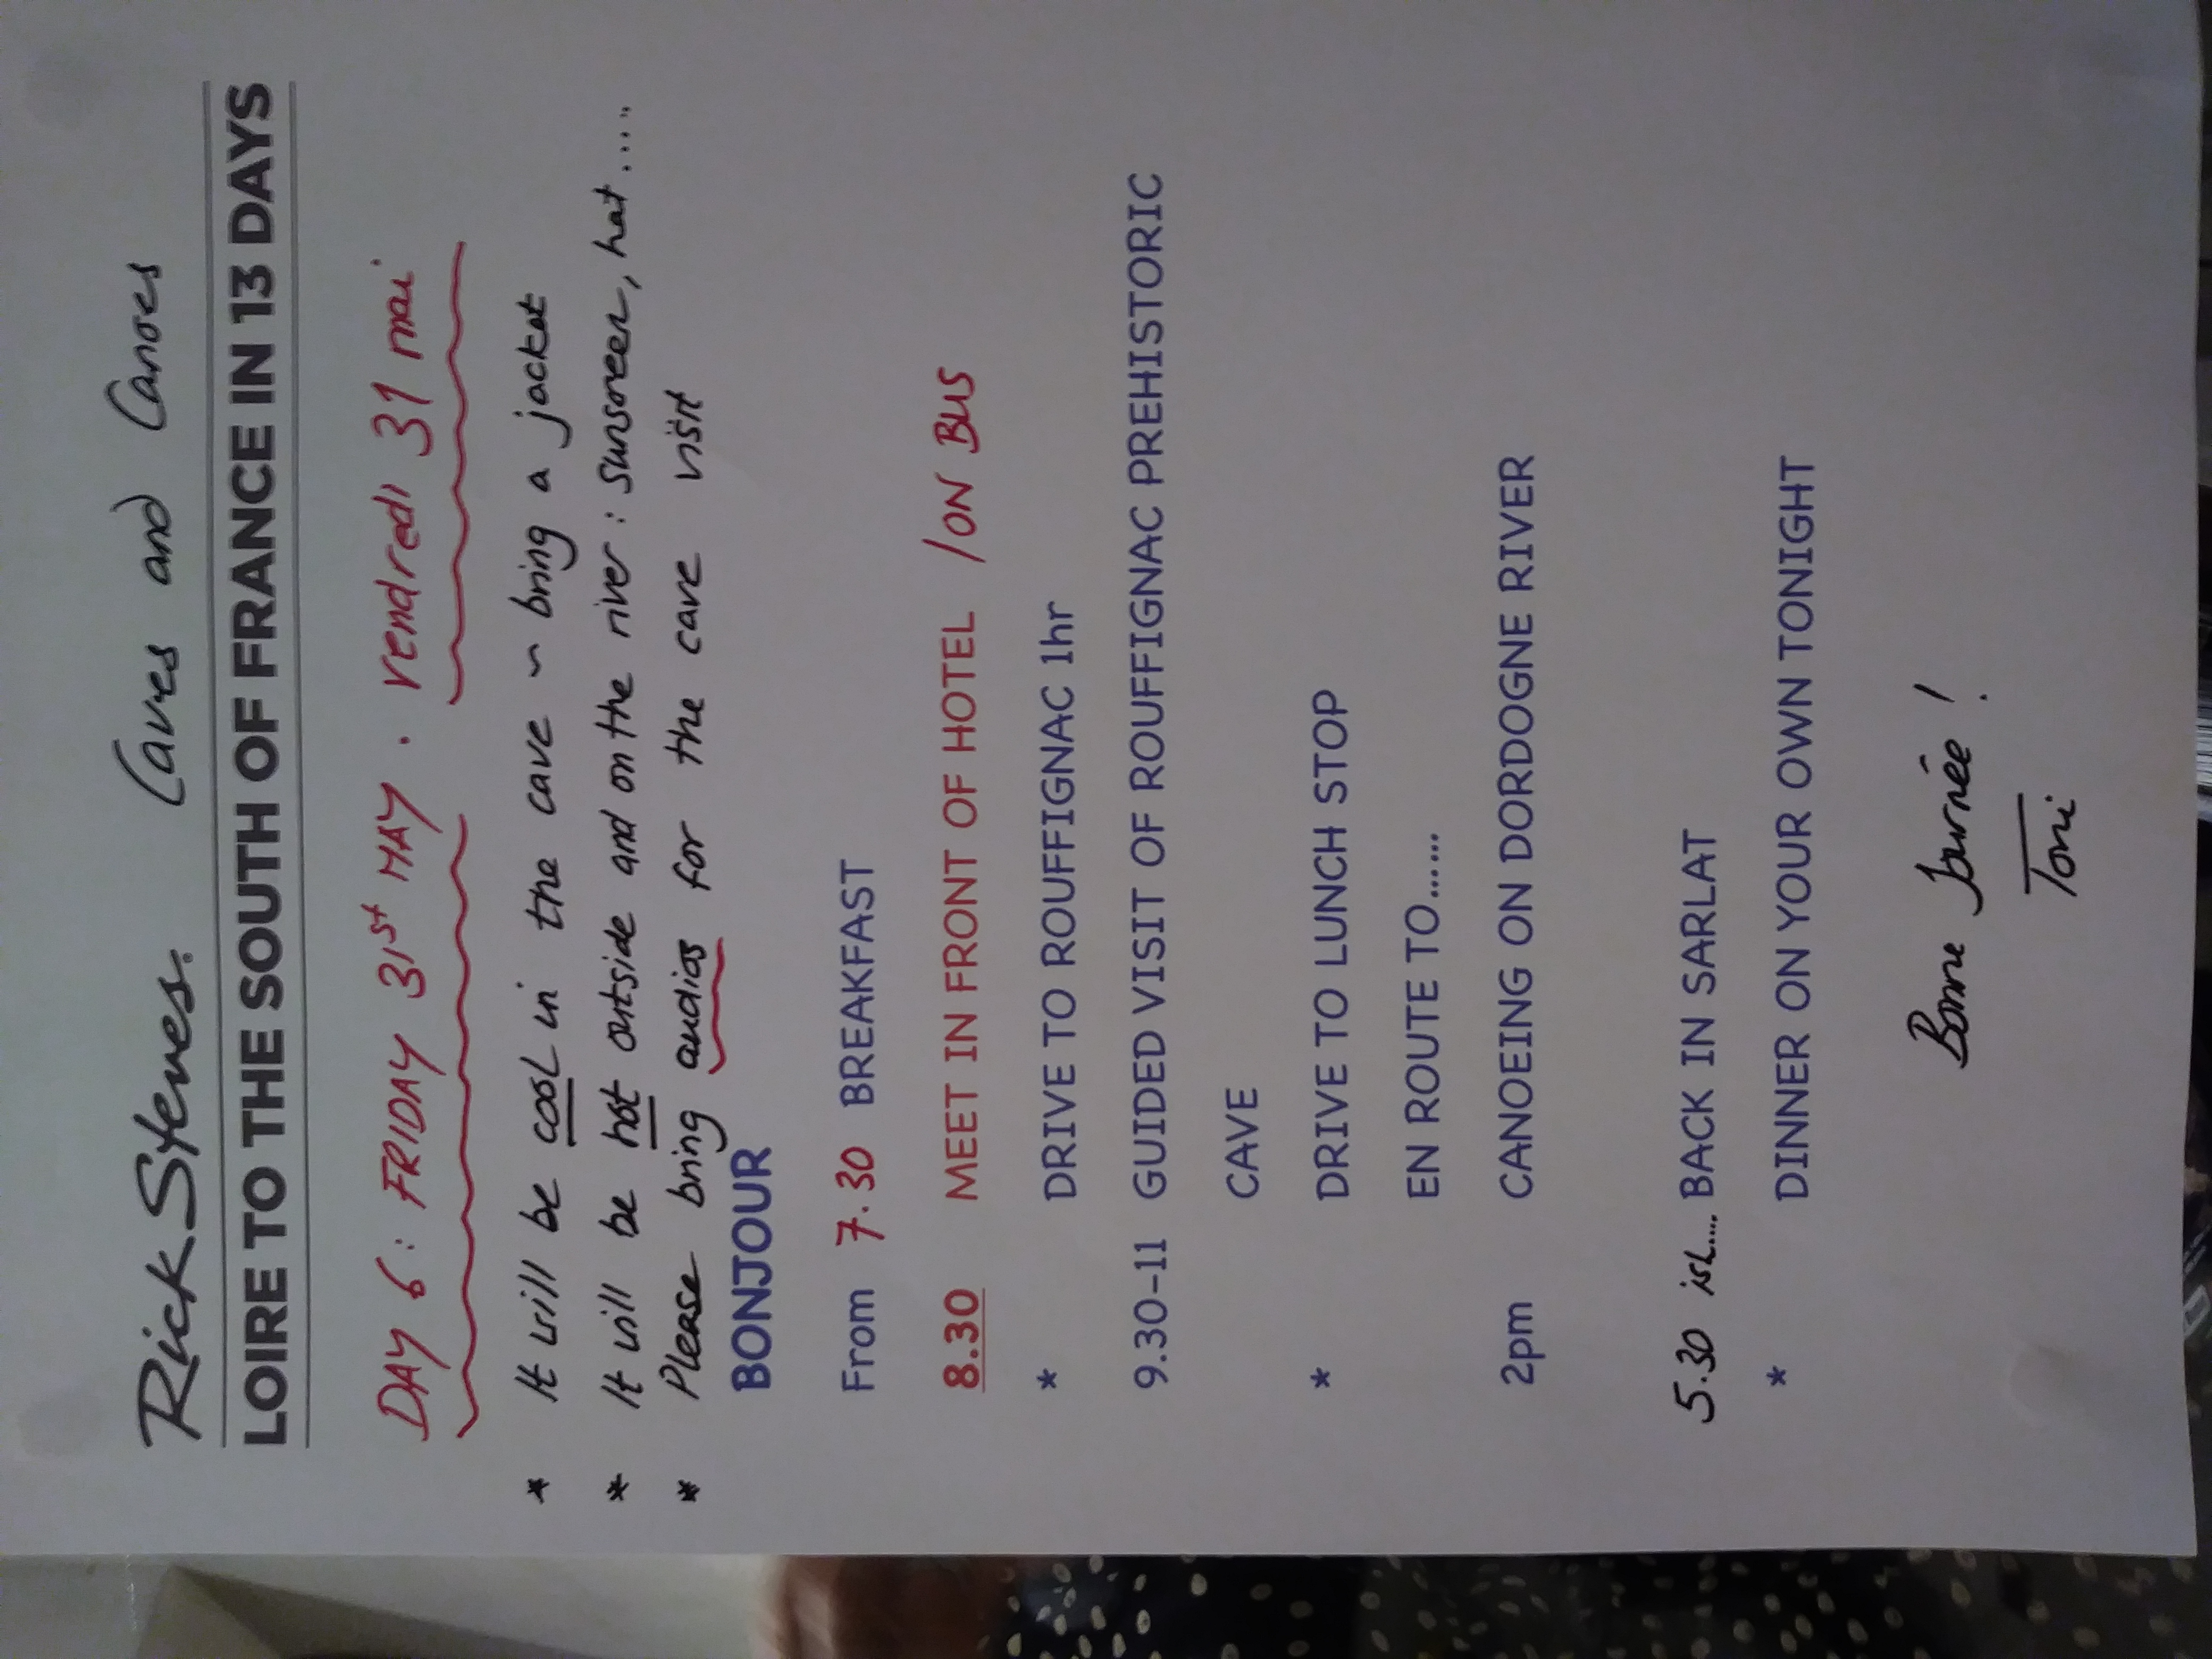 Rick Steves. Caves and Canoes
LOIRE TO THE SOUTH OF FRANCE IN 13 DAYS
DAY 6: FRIDAY 31st MAY . vendredi 31 mai
* It will be cool in the cave ~ bring a jacket
* It will be hot outside and on the river: sunscreen, hat.....
* Please bring audios for the cave visit
BONJOUR
From 7.30 BREAKFAST
8.30 MEET IN FRONT OF HOTEL /ON BUS
* DRIVE TO ROUFFIGNAC 1hr
9.30-11 GUIDED VISIT OF ROUFFIGNAC PREHISTORIC
CAVE
* DRIVE TO LUNCH STOP
EN ROUTE TO......
2pm CANOEING ON DORDOGNE RIVER
5.30 ish.... BACK IN SARLAT
* DINNER ON YOUR OWN TONIGHT
Bonne Journée !
Toni